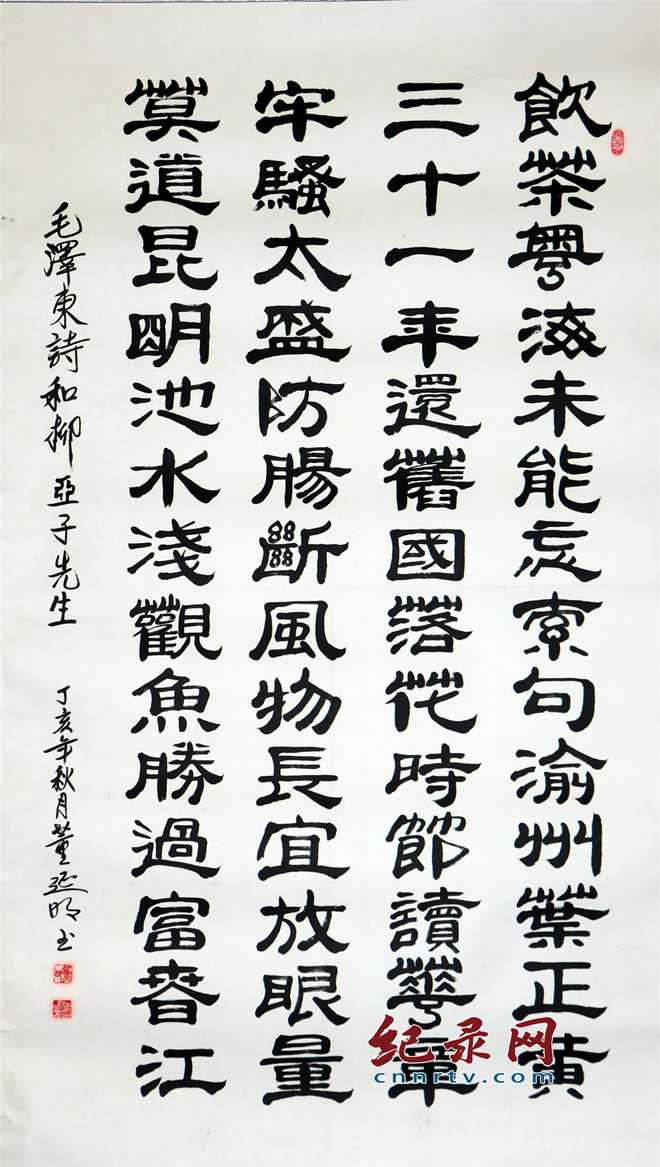 飲茶粵海未能忘索句渝州葉正黃
三十一年還舊國落花時節讀華章
牢騷太盛防腸斷風物長宜放眼量
莫道昆明池水淺觀魚勝過富春江
毛澤東詩和柳亞子先生
丁亥年秋月董延明書
纪录网
cnnrtv.com